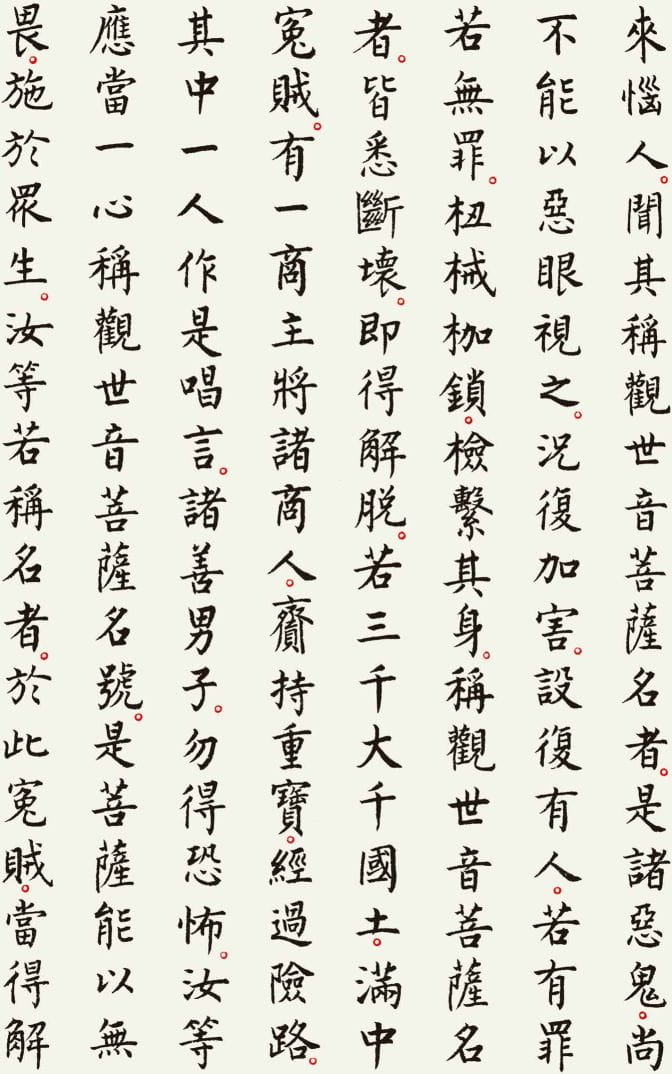 來惱人。聞其稱觀世音菩薩名者。是諸惡鬼。尚
不能以惡眼視之。況復加害。設復有人。若有罪
若無罪。杻械枷鎖。檢繫其身。稱觀世音菩薩名
者。皆悉斷壞。即得解脫。若三千大千國土。滿中
冤賊。有一商主將諸商人。齎持重寶。經過險路。
其中一人作是唱言。諸善男子。勿得恐怖。汝等
應當一心稱觀世音菩薩名號。是菩薩能以無
畏。施於眾生。汝等若稱名者。於此冤賊。當得解